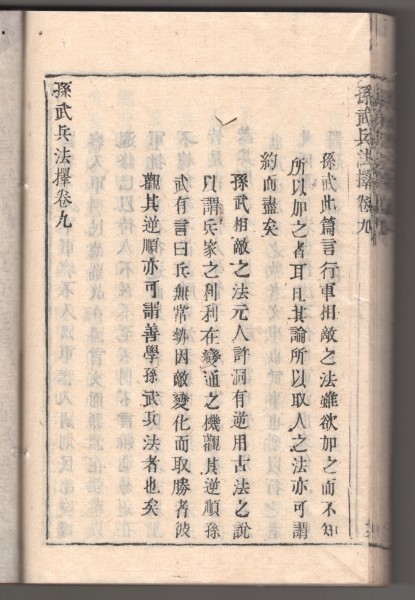 孫武此篇言行軍相敵之法雖欲加之而不知
所以加之者耳且其論所以取人之法亦可謂
約而盡矣
孫武相敵之法元人許洞有逆用古法之說
以謂兵家之利利在變通之機觀其逆順孫
武有言曰兵無常勢因敵變化而取勝者彼
觀其逆順亦可謂善學孫武兵法者也矣
孫武兵法擇卷九
孫武兵法擇卷九